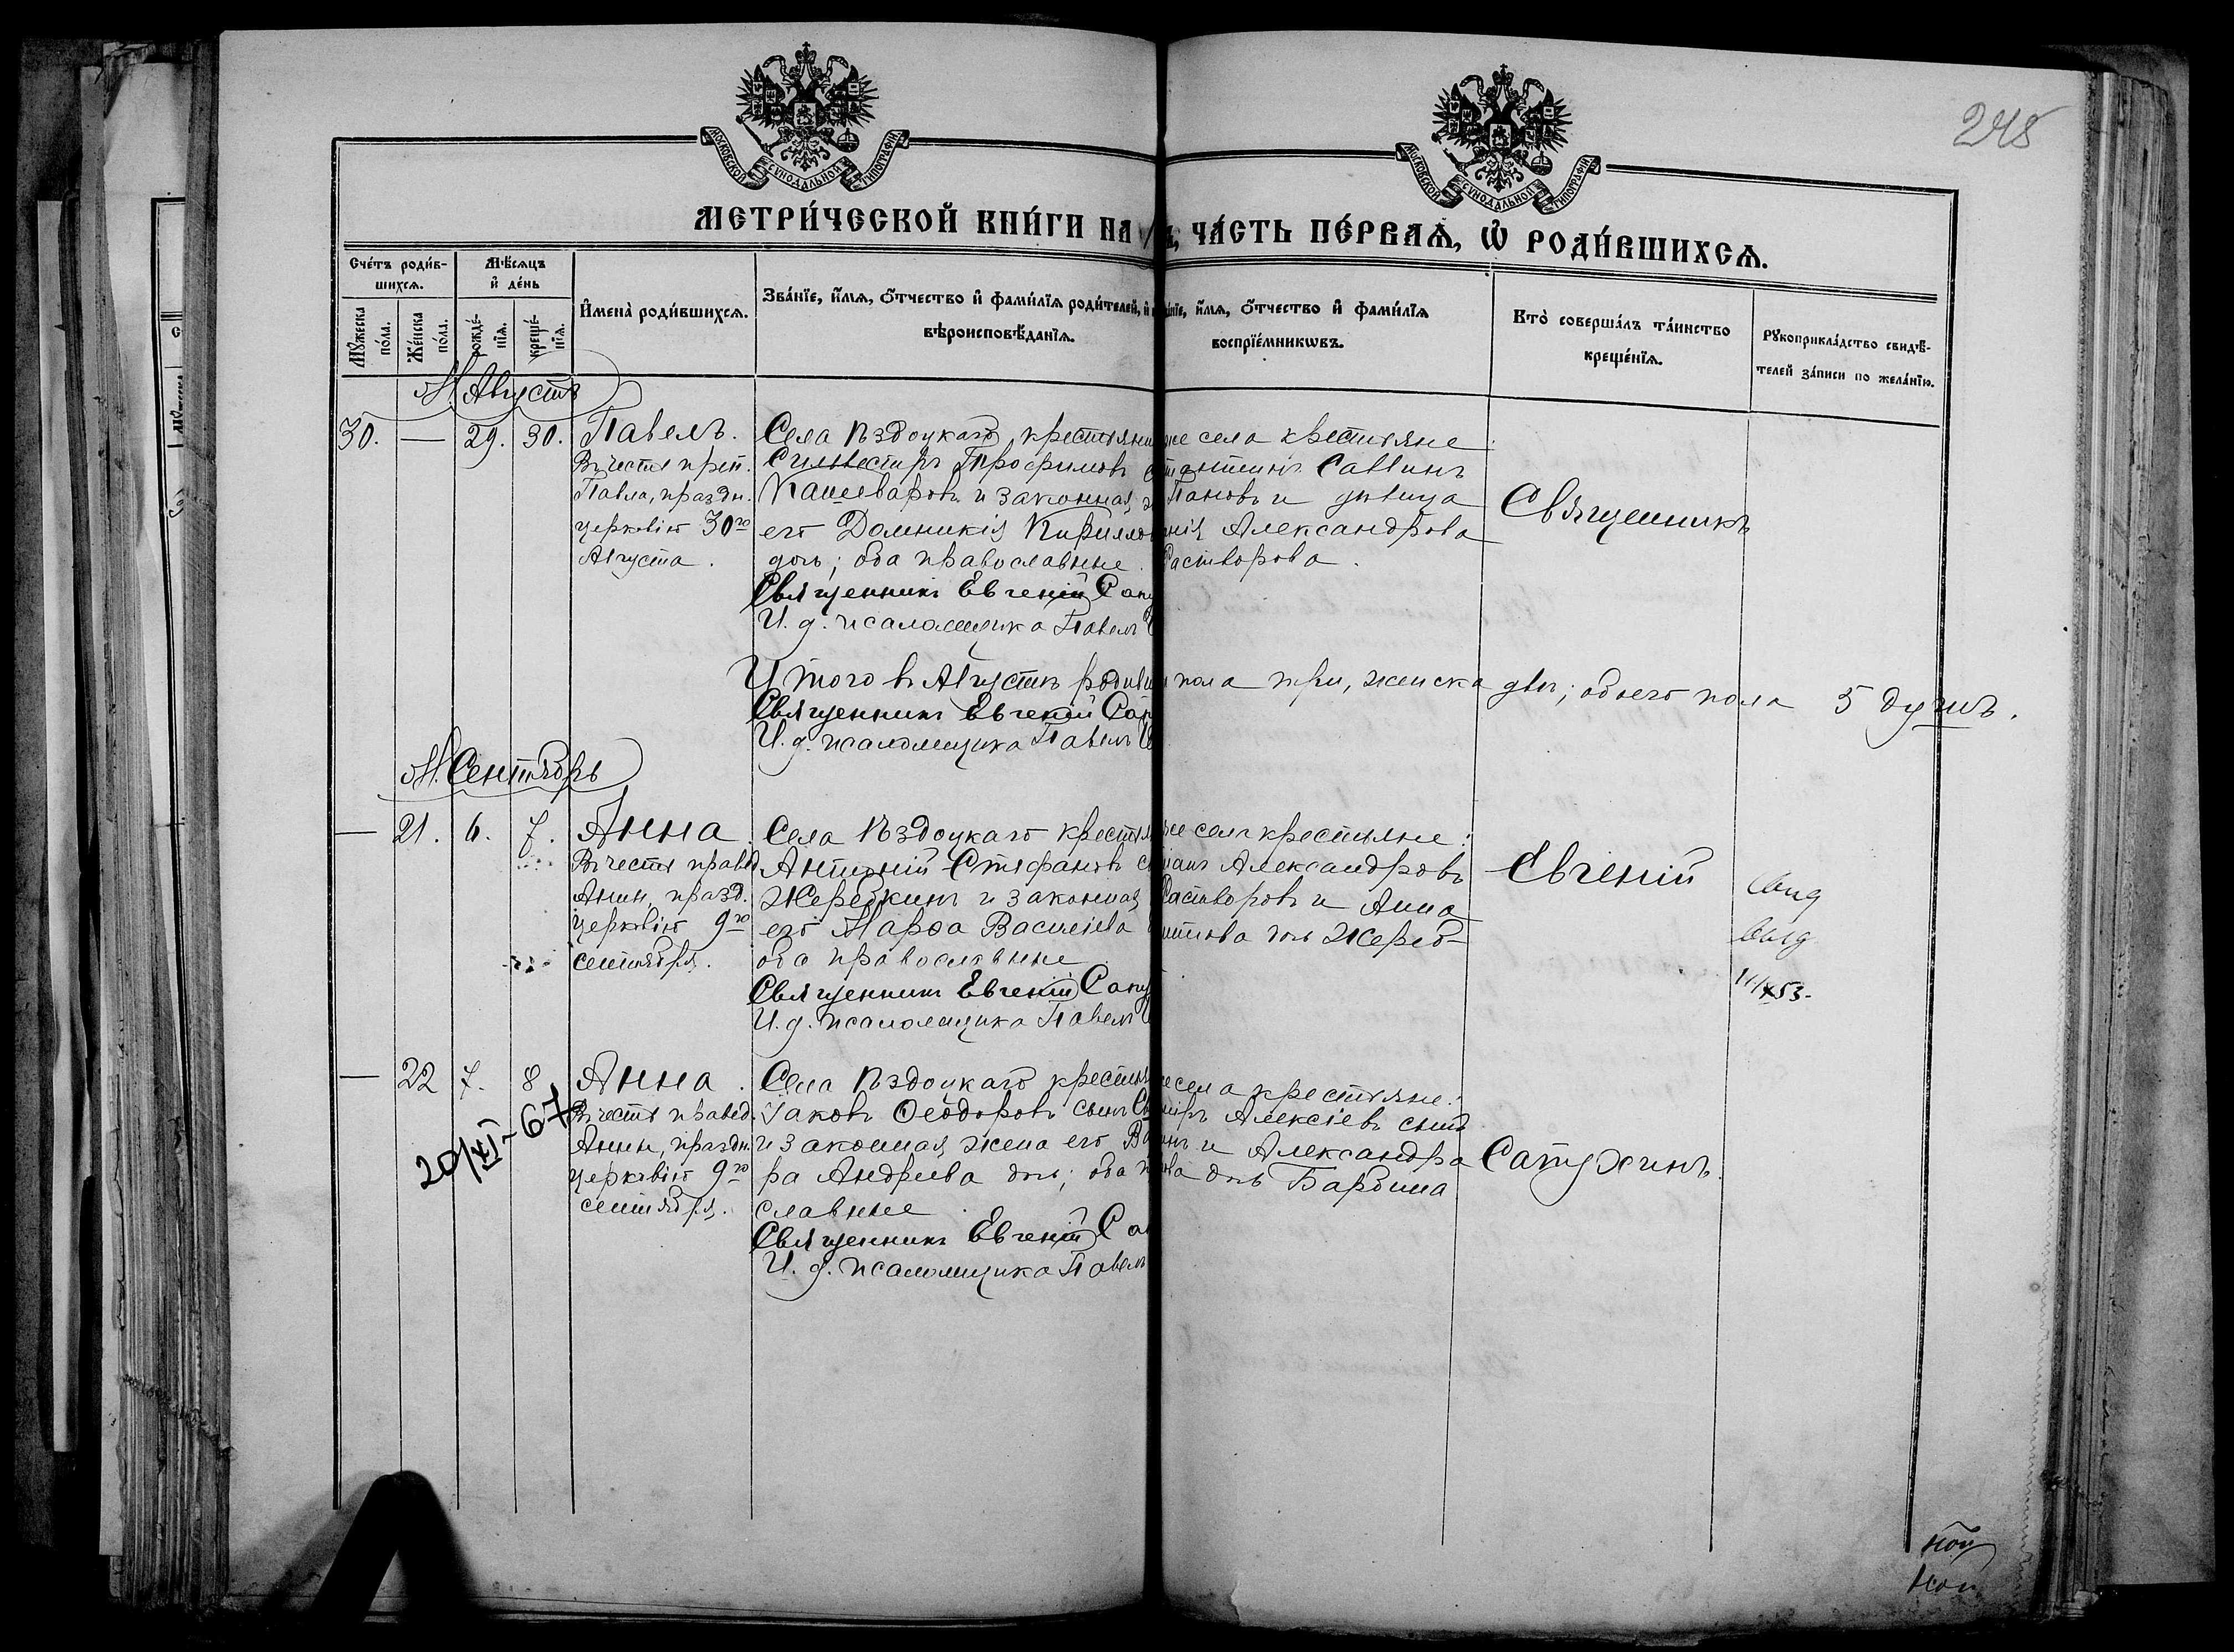 МОСКОВСКОЙ СУНОДАЛЬНОЙ ТИПОГРАФІИ
МОСКОВСКОЙ СУНОДАЛЬНОЙ ТИПОГРАФІИ
245
МЕТРИ́ЧЕСКОЙ КНИ́ГИ НА
ЧА́СТЬ ПЕ́РВАѦ, Ѽ РОДИ́ВШИХСѦ.
Сче́тъ роди́в-
шихсѧ.
Мꙋ́жеска по́ла.
Же́нска по́ла.
Мѣ́сѧцъ
и҆ де́нь
рожде́-нїѧ.
креще́-нїѧ.
И҆мена̀ роди́вшихсѧ.
Зва́нїе, и҆́мѧ, ѻ҆́тчество и҆ фами́лїѧ роди́телей, и҆
вѣроисповѣ́данїѧ.
и҆́мѧ, ѻ҆́тчество и҆ фами́лїѧ
воспрїе́мникѡвъ.
Кто̀ соверша́лъ та́инство
креще́нїѧ.
Рꙋкоприкла́дство свидѣ́-
телей за́писи по жела́нїю.
М. Августъ
30. — 29. 30.
Павелъ.
Въ честь преп.
Павла, праздн.
церковію 30го
Августа.
Села Пздоцкаго крестьяни
Сильвестръ Трофимовъ
Кашеваровъ и законная
его Домникія Кирилло
дочь; оба православные.
Священникъ Евгеній Сапу
И. д. псаломщика Павелъ
села крестьяне
Саввинъ
Пановъ и дѣвица
Александрова
Растворова.
Священникъ
Итого въ Августѣ родивши
пола три, женска двѣ; обоего пола 5 душъ.
Священникъ Евгеній Сап
И. д. псаломщика Павелъ
М. Сентябрь
— 21. 6. 7.
Анна
Въ честь правед
Анны, празд.
церковію 9го
сентября.
Села Пздоцкаго крестья
Антоній Стефановъ с
Жеребкинъ и законная
его Марѳа Васильева
оба православные
Священникъ Евгеній Сапу
И. д. псаломщика Павелъ
села крестьяне:
Александровъ
Растворовъ и Анна
дочь Жереб-
Евгеній
— 22 7. 8
Анна.
Въ честь правед.
Анны, праздн.
церковію 9го
сентября.
20/XI-67
Села Пздоцкаго крестья
Іаковъ Ѳеодоровъ сынъ
и законная жена его Ва
ра Андреева дочь; оба п
славные
Священникъ Евгеній Са
И. д. псаломщика Павелъ
села крестьяне:
Алексіевъ сынъ
и Александра
дочь Барбина
Сапухинъ.